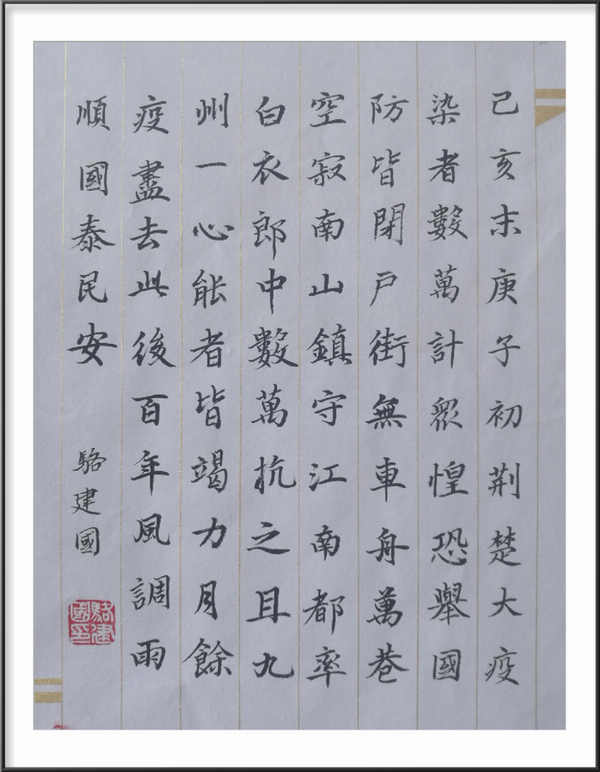 己亥末庚子初荆楚大疫
染者數萬計眾惶恐舉國
防皆閉戶街無車舟萬巷
空寂南山鎮守江南都率
白衣郎中數萬抗之且九
州一心能者皆竭力月餘
疫盡去此後百年風調雨
順國泰民安
駱建國
駱建國印